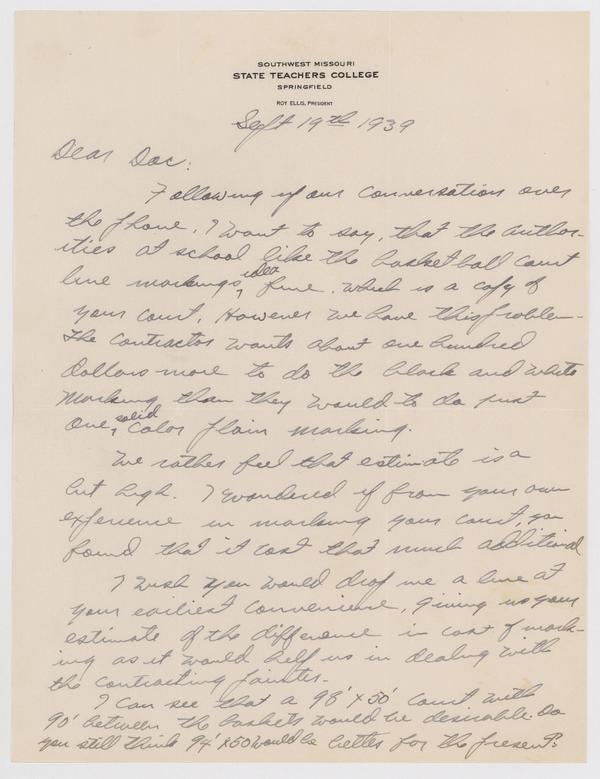 SOUTHWEST MISSOURI
STATE TEACHERS COLLEGE
SPRINGFIELD
ROY ELLIS, PRESIDENT
Sept 19th 1939
Dear Doc:
Following up our conversation over
the phone, I want to say, that the author-
ities at school like the basketball court
line markings, idea fine. Which is a copy of
your court. However we have this problem-
the contractor wants about one hundred
dollars more to do the black and white
marking than they would to do just
one, solid color plain marking.
We rather feel that estimate is a
bit high. I wondered if from your own
experience in marking your court, you
found that it cost that much additional
I wish you would drop me a line at
your earliest convenience, giving us your
estimate of the difference in cost of mark-
ing as it would help us in dealing with
the contracting painter.
I can see that a 98' x 50' court with
90' between the baskets would be desirable. Do
you still think 94' x 50 would be better for the present?